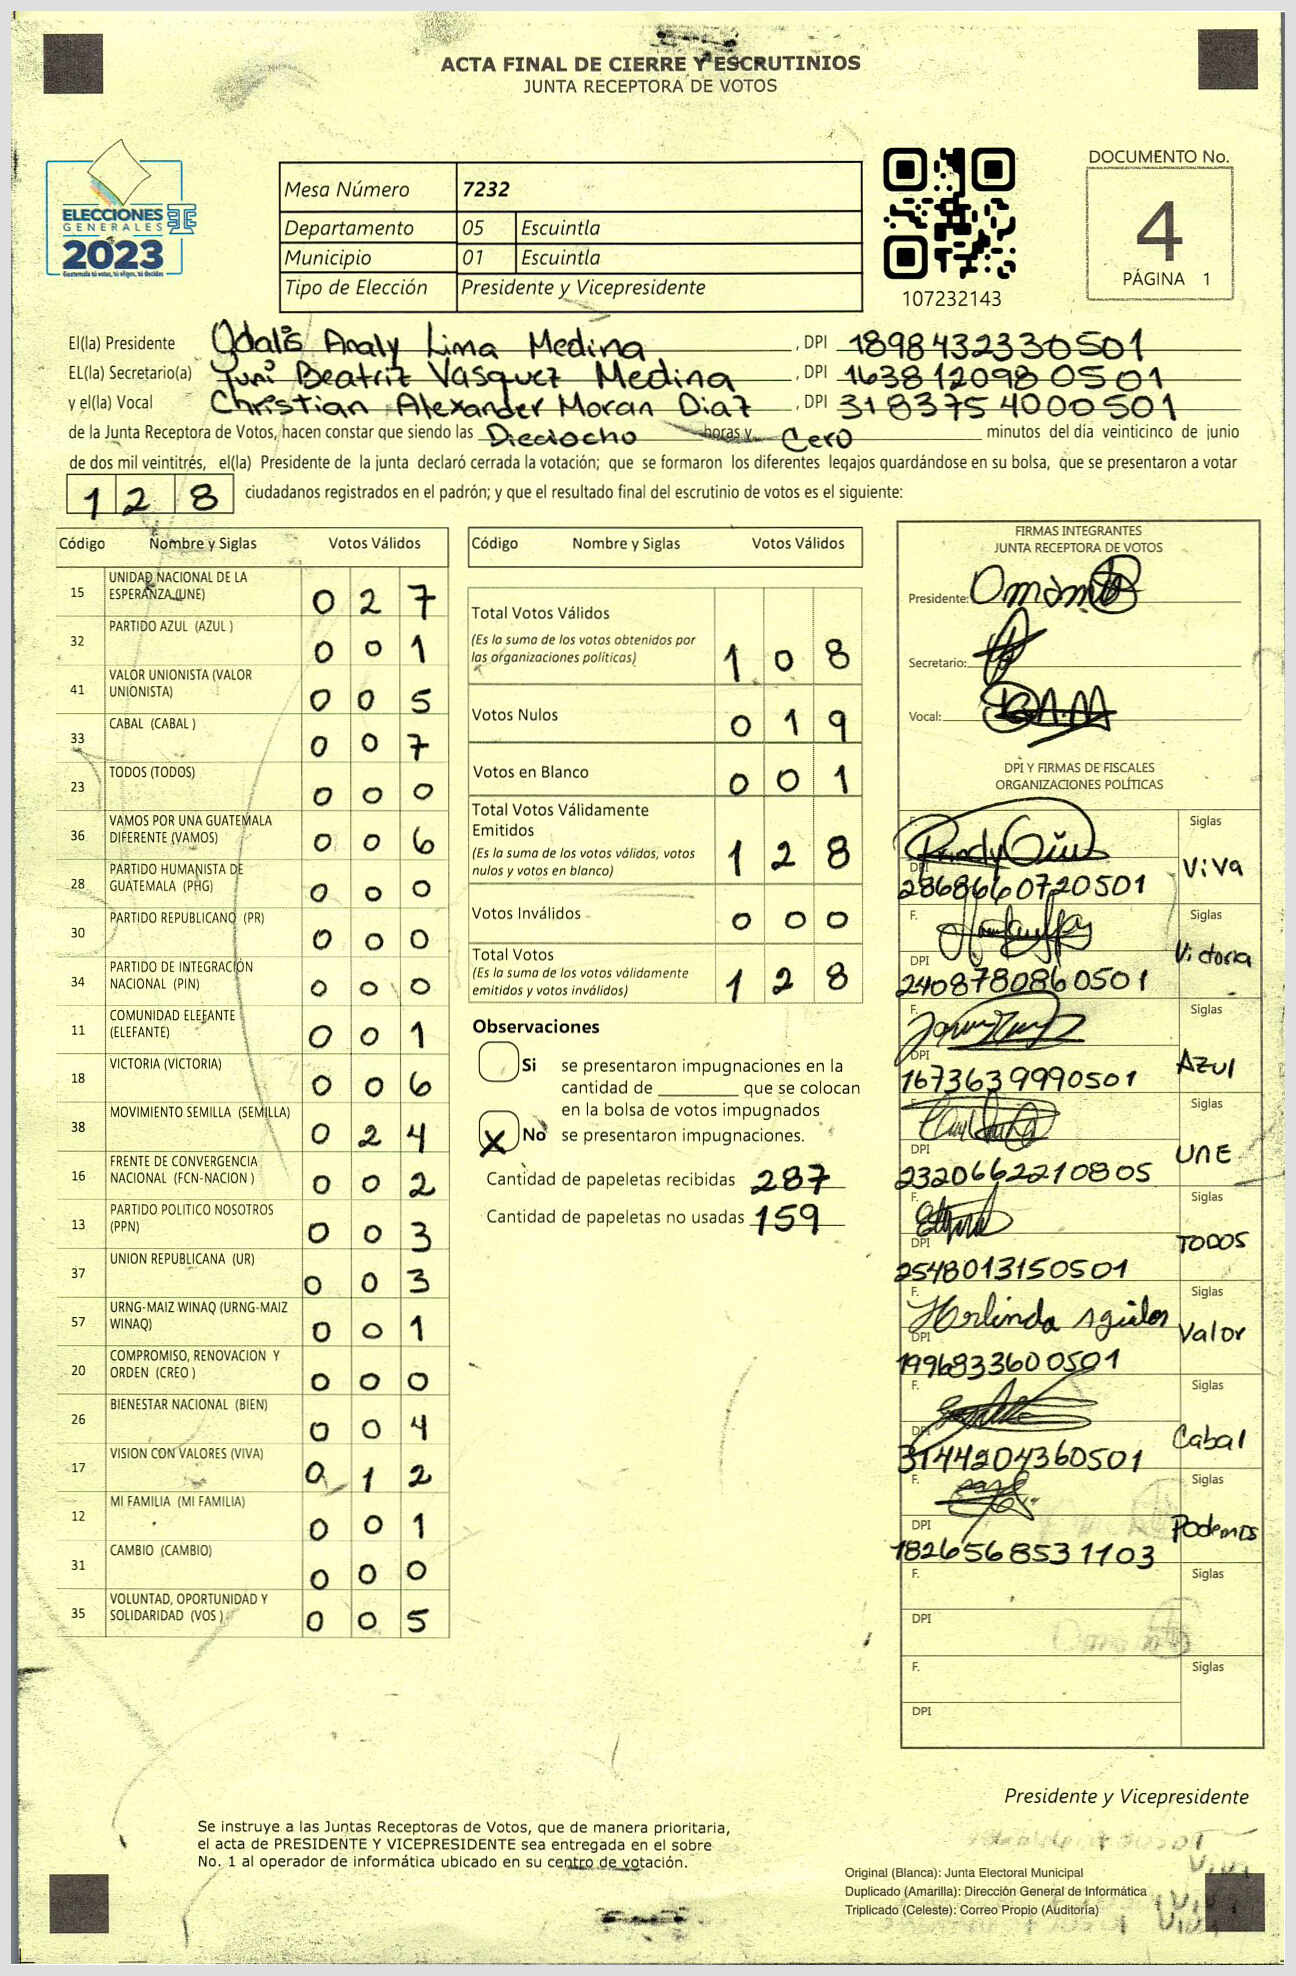 ACTA FINAL DE CIERRE Y ESCRUTINIOS
JUNTA RECEPTORA DE VOTOS
ELECCIONES
GENERALES
2023
Guatemala tú votas, tú eliges, tú decides
Mesa Número 7232
Departamento 05 Escuintla
Municipio 01 Escuintla
Tipo de Elección Presidente y Vicepresidente
107232143
DOCUMENTO No.
4
PÁGINA 1
El(la) Presidente Odalis Analy Lima Medina, DPI 1898432330501
EL(la) Secretario(a) Yuni Beatriz Vasquez Medina, DPI 1638120980501
y el(la) Vocal Christian Alexander Moran Diaz, DPI 3183754000501
de la Junta Receptora de Votos, hacen constar que siendo las Dieciocho horas y Cero minutos del día veinticinco de junio
de dos mil veintitrés, el(la) Presidente de la junta declaró cerrada la votación; que se formaron los diferentes legajos quardándose en su bolsa, que se presentaron a votar
128 ciudadanos registrados en el padrón; y que el resultado final del escrutinio de votos es el siguiente:
Código Nombre y Siglas Votos Válidos
15 UNIDAD NACIONAL DE LA ESPERANZA (UNE) 027
32 PARTIDO AZUL (AZUL ) 001
41 VALOR UNIONISTA (VALOR UNIONISTA) 005
33 CABAL (CABAL ) 007
23 TODOS (TODOS) 000
36 VAMOS POR UNA GUATEMALA DIFERENTE (VAMOS) 006
28 PARTIDO HUMANISTA DE GUATEMALA (PHG) 000
30 PARTIDO REPUBLICANO (PR) 000
34 PARTIDO DE INTEGRACIÓN NACIONAL (PIN) 000
11 COMUNIDAD ELEFANTE (ELEFANTE) 001
18 VICTORIA (VICTORIA) 006
38 MOVIMIENTO SEMILLA (SEMILLA) 024
16 FRENTE DE CONVERGENCIA NACIONAL (FCN-NACION ) 002
13 PARTIDO POLITICO NOSOTROS (PPN) 003
37 UNION REPUBLICANA (UR) 003
57 URNG-MAIZ WINAQ (URNG-MAIZ WINAQ) 001
20 COMPROMISO, RENOVACION Y ORDEN (CREO ) 000
26 BIENESTAR NACIONAL (BIEN) 004
17 VISION CON VALORES (VIVA) 012
12 MI FAMILIA (MI FAMILIA) 001
31 CAMBIO (CAMBIO) 000
35 VOLUNTAD, OPORTUNIDAD Y SOLIDARIDAD (VOS ) 005
Código Nombre y Siglas Votos Válidos
Total Votos Válidos
(Es la suma de los votos obtenidos por
las organizaciones políticas) 108
Votos Nulos 019
Votos en Blanco 001
Total Votos Válidamente
Emitidos
(Es la suma de los votos válidos, votos
nulos y votos en blanco) 128
Votos Inválidos 000
Total Votos
(Es la suma de los votos válidamente
emitidos y votos inválidos) 128
Observaciones
Si se presentaron impugnaciones en la
cantidad de ________ que se colocan
en la bolsa de votos impugnados
X No se presentaron impugnaciones.
Cantidad de papeletas recibidas 287
Cantidad de papeletas no usadas 159
FIRMAS INTEGRANTES
JUNTA RECEPTORA DE VOTOS
Presidente:
Secretario:
Vocal:
DPI Y FIRMAS DE FISCALES
ORGANIZACIONES POLÍTICAS
F. Siglas
DPI 2868660720501 ViVa
F. Siglas
DPI 2408780860501 Victoria
F. Siglas
DPI 1673639990501 Azul
Siglas
DPI 2320662210805 UNE
F. Siglas
DPI 2548013150501 TODOS
F. Herlinda Aguilar Siglas
DPI 1996833600501 Valor
F. Siglas
DPI 3144204360501 Cabal
F. Siglas
DPI 1826568531103 Podemos
F. Siglas
DPI
F. Siglas
DPI
Presidente y Vicepresidente
Se instruye a las Juntas Receptoras de Votos, que de manera prioritaria,
el acta de PRESIDENTE Y VICEPRESIDENTE sea entregada en el sobre
No. 1 al operador de informática ubicado en su centro de votación.
Original (Blanca): Junta Electoral Municipal
Duplicado (Amarilla): Dirección General de Informática
Triplicado (Celeste): Correo Propio (Auditoría)